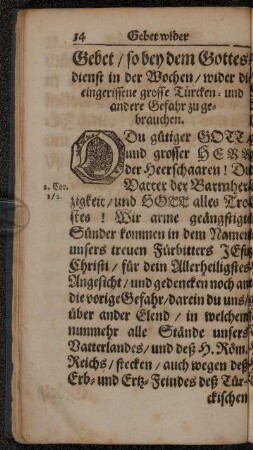 14 Gebet wider
Gebet / so bey dem Gottes-
dienst in der Wochen / wider die
eingerissene grosse Türcken- und
andere Gefahr zu ge-
brauchen.
O Du gütiger GOTT /
und grosser HERR
der Heerschaaren! Du
2. Cor. Vatter der Barmher-
1/2. zigkeit / und GOTT alles Tro-
stes! Wir arme geängstigte
Sünder kommen in dem Namen
unsers treuen Fürbitters JEsu
Christi / für dein Allerheiligstes
Angesicht / und gedencken noch an
die vorige Gefahr / darein du uns /
über ander Elend / in welchem
nunmehr alle Stände unsers
Vatterlandes / und deß H. Röm.
Reichs / stecken / auch wegen deß
Erb- und Ertz-Feindes deß Tür-
ckischen